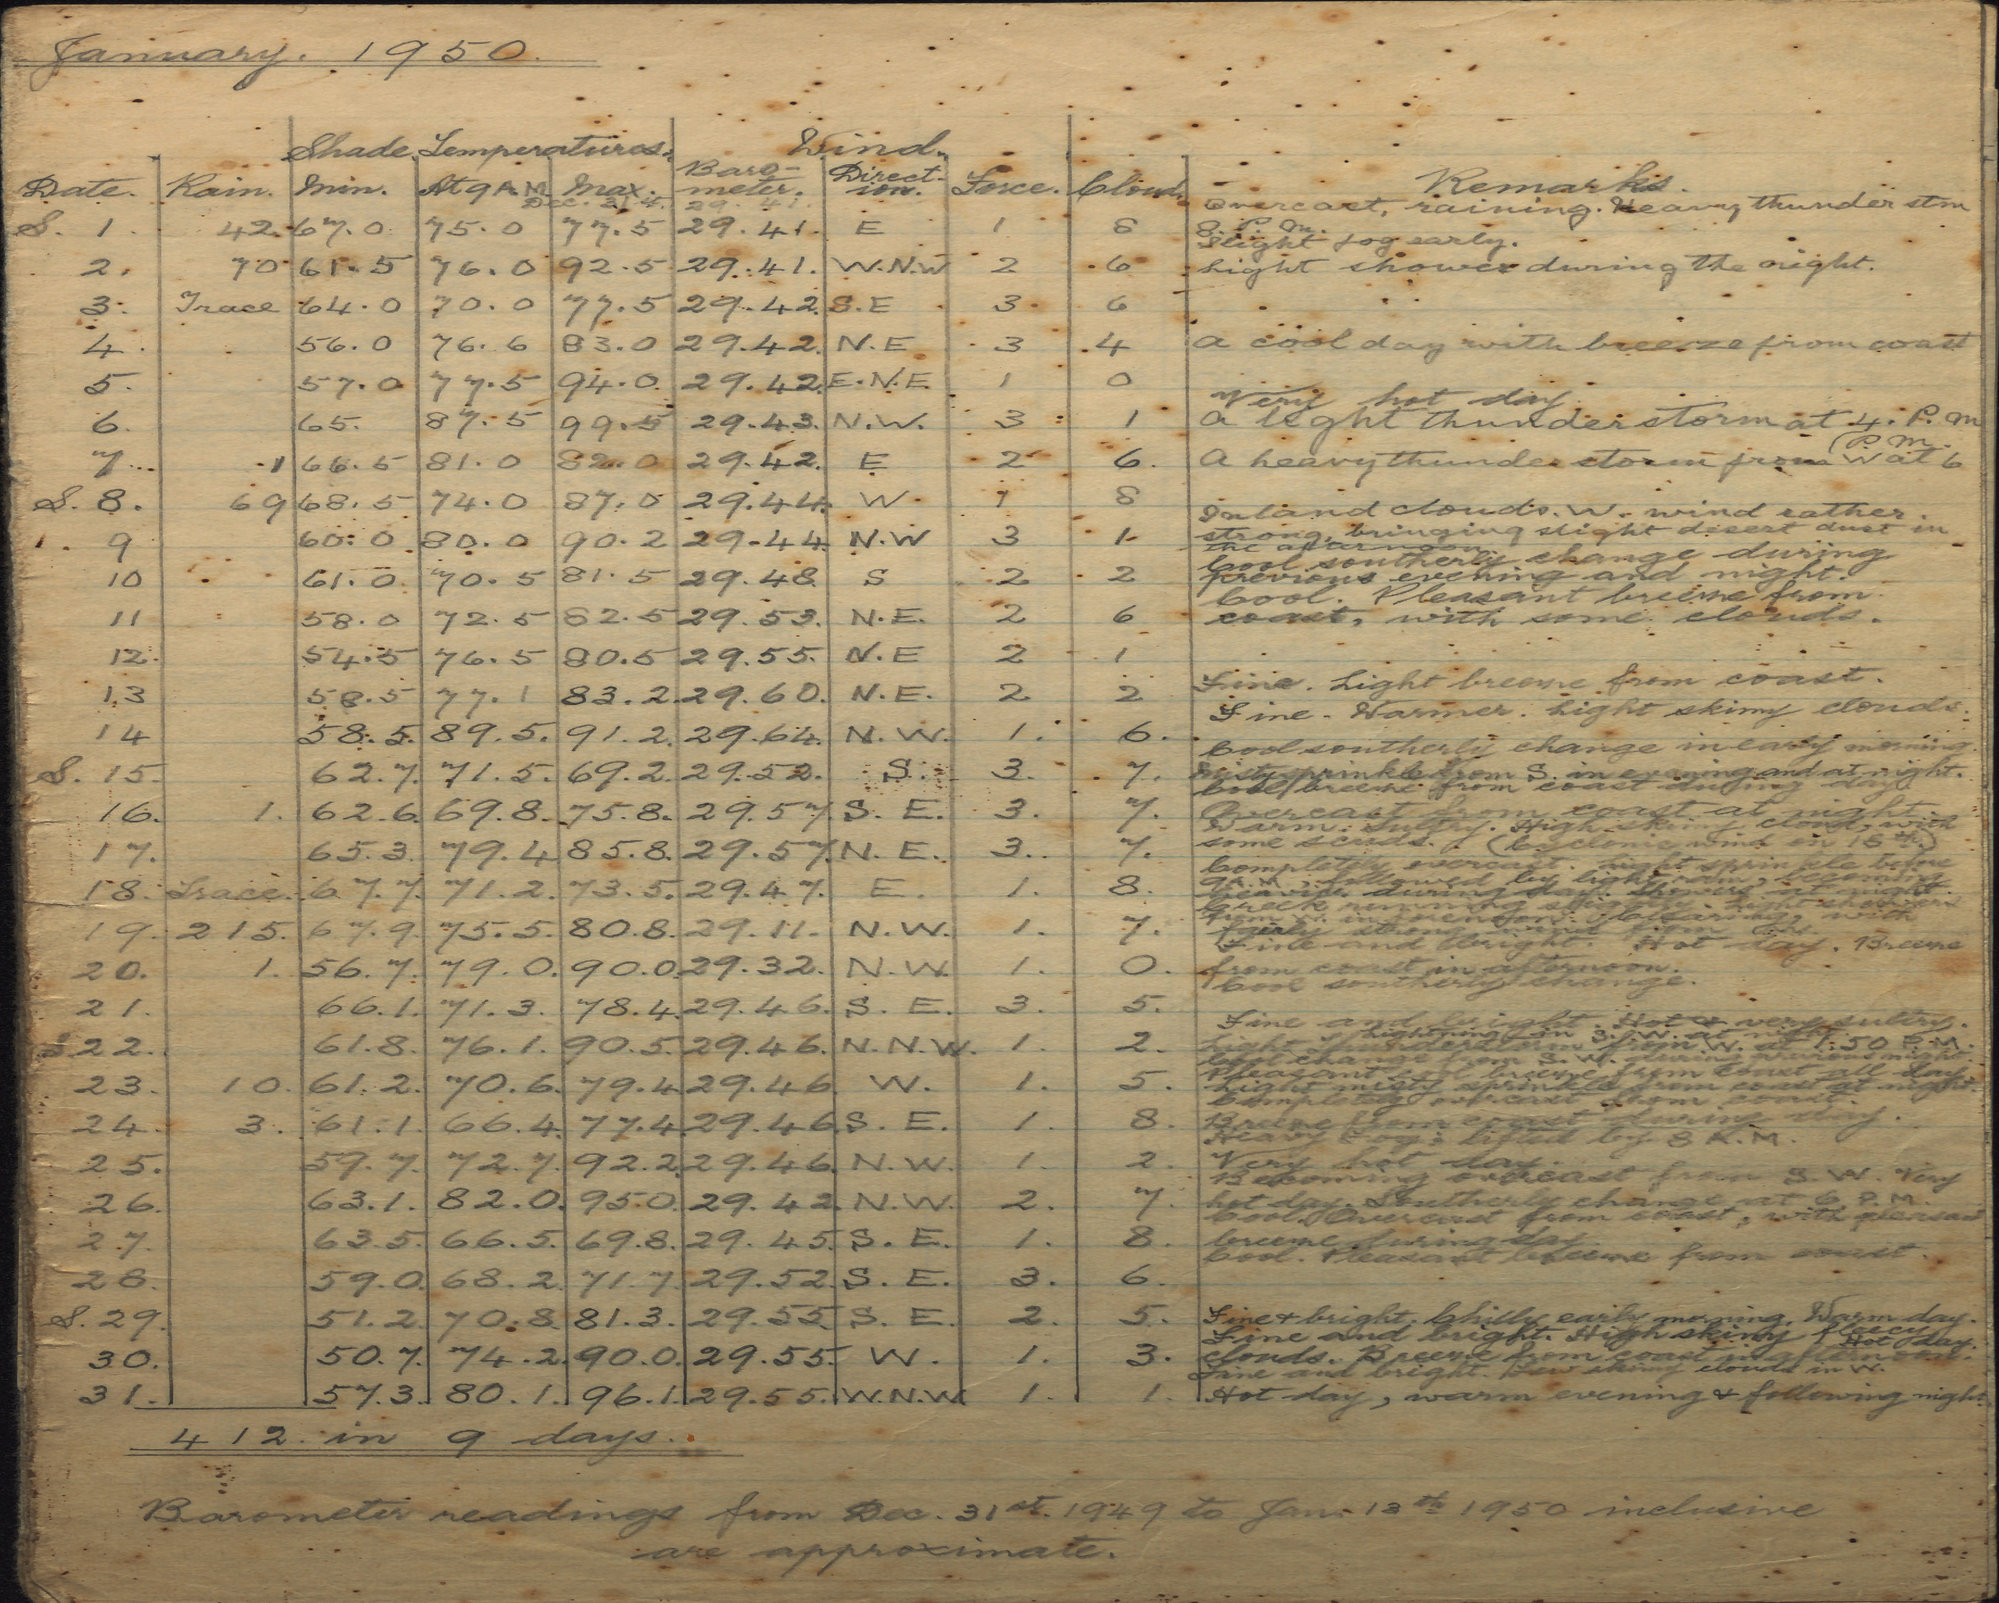 January. 1950.
Shade Temperatures. Wind.
Date. Rain. Min. At 9 A.M. Max. Baro-meter. Direct-ion. Force. Cloud. Remarks.
Dec. 31st. 29.41.
Overcast, raining. Heavy thunder stm
S. 1. 42. 67.0 75.0 77.5 29.41. E 1 8 8. P.M.
Slight fog early.
2. 70 61.5 76.0 92.5 29.41. W.N.W 2 6 Light shower during the night.
3. Trace 64.0 70.0 77.5 29.42. S.E 3 6
4. 56.0 76.6 83.0 29.42. N.E 3 4 A cool day with breeze from coast
5. 57.0 77.5 94.0 29.42. E.N.E. 1 0
Very hot day
6. 65. 87.5 99.5 29.43. N.W. 3 1 A light thunderstorm at 4. P.M
7. .1 66.5 81.0 82.0 29.42. E 2 6. A heavy thunder storm from W at 6 P.M.
S. 8. 69 68.5 74.0 87.0 29.44. W 1 8
Inland clouds. W. wind rather.
9 60.0 80.0 90.2 29.44. N.W 3 1 strong, bringing slight desert dust in
the afternoon.
Cool southerly change during
10 61.0 70.5 81.5 29.48 S 2 2 previous evening and night.
Cool. Pleasant breeze from
11 58.0 72.5 82.5 29.53. N.E. 2 6 coast, with some clouds.
12. 54.5 76.5 80.5 29.55. N.E 2 1
13 58.5 77.1 83.2. 29.60. N.E. 2 2 Fine. Light breeze from coast.
Fine. Warmer. Light skimy clouds.
14 58.5. 89.5. 91.2. 29.64. N.W. 1. 6.
Cool southerly change in early morning.
S. 15. 62.7. 71.5. 69.2. 29.52. S. 3. 7. Misty sprinkle from S. in evening and at night.
Cool breeze from coast during day.
16. 1. 62.6. 69.8. 75.8. 29.57. S. E. 3. 7. Overcast from coast at night.
Warm. Sultry. High skimy cloud, with
17. 65.3. 79.4 85.8. 29.57. N. E. 3. 7. some scuds. (Cyclonic wind on 18th.)
Completely overcast. Light sprinkle before
18. Trace. 67.7. 71.2. 73.5. 29.47. E. 1. 8. 9 A.M., followed by light rain, becoming
heavier during day. Showers at night.
Creek running slightly. Light showers
19. 215. 67.9. 75.5. 80.8. 29.11. N.W. 1. 7. from W. in forenoon. Clearing, with
fairly strong wind from
Fine and bright. Hot day. Breeze
20. 1. 56.7. 79.0. 90.0. 29.32. N.W. 1. 0. from coast in afternoon.
Cool southerly change.
21. 66.1. 71.3. 78.4. 29.46. S. E. 3. 5.
Fine and bright. Hot & very sultry.
lightning in S.W. at night
S 22. 61.8. 76.1. 90.5. 29.46. N.N.W. 1. 2. Light thunderstorm from W. at 1.50 P.M.
Cool change from S.W. during previous night.
Pleasant cool breeze from coast all day.
23. 10. 61.2. 70.6. 79.4 29.46 W. 1. 5. Light misty sprinkle from coast at night.
Completely overcast from coast.
24. 3. 61.1. 66.4. 77.4 29.46. S. E. 1. 8. Breeze from coast during day.
Heavy fog; lifted by 8 A.M.
25. 59.7. 72.7. 92.2. 29.46. N.W. 1. 2. Very hot day.
Becoming overcast from S.W. Very
26. 63.1. 82.0. 95.0. 29.42. N.W. 2. 7. hot day. Southerly change at 6 P.M.
Cool. Overcast from coast, with pleasant
27. 63.5. 66.5. 69.8. 29.45. S. E. 1. 8. breeze during day.
Cool. Pleasant breeze from coast.
28. 59.0. 68.2. 71.7. 29.52. S. E. 3. 6.
S. 29. 51.2. 70.8. 81.3. 29.55. S. E. 2. 5. Fine & bright. Chilly early morning. Warm day.
Fine and bright. High skimy fleecy
Hot day.
30. 50.7. 74.2. 90.0. 29.55. W. 1. 3. clouds. Breeze from coast in afternoon.
Fine and bright. Few skimy clouds in W.
31. 57.3. 80.1. 96.1. 29.55. W.N.W. 1. 1. Hot day, warm evening & following night.
412. in 9 days.
Barometer readings from Dec. 31st. 1949 to Jan. 13th 1950 inclusive
are approximate.